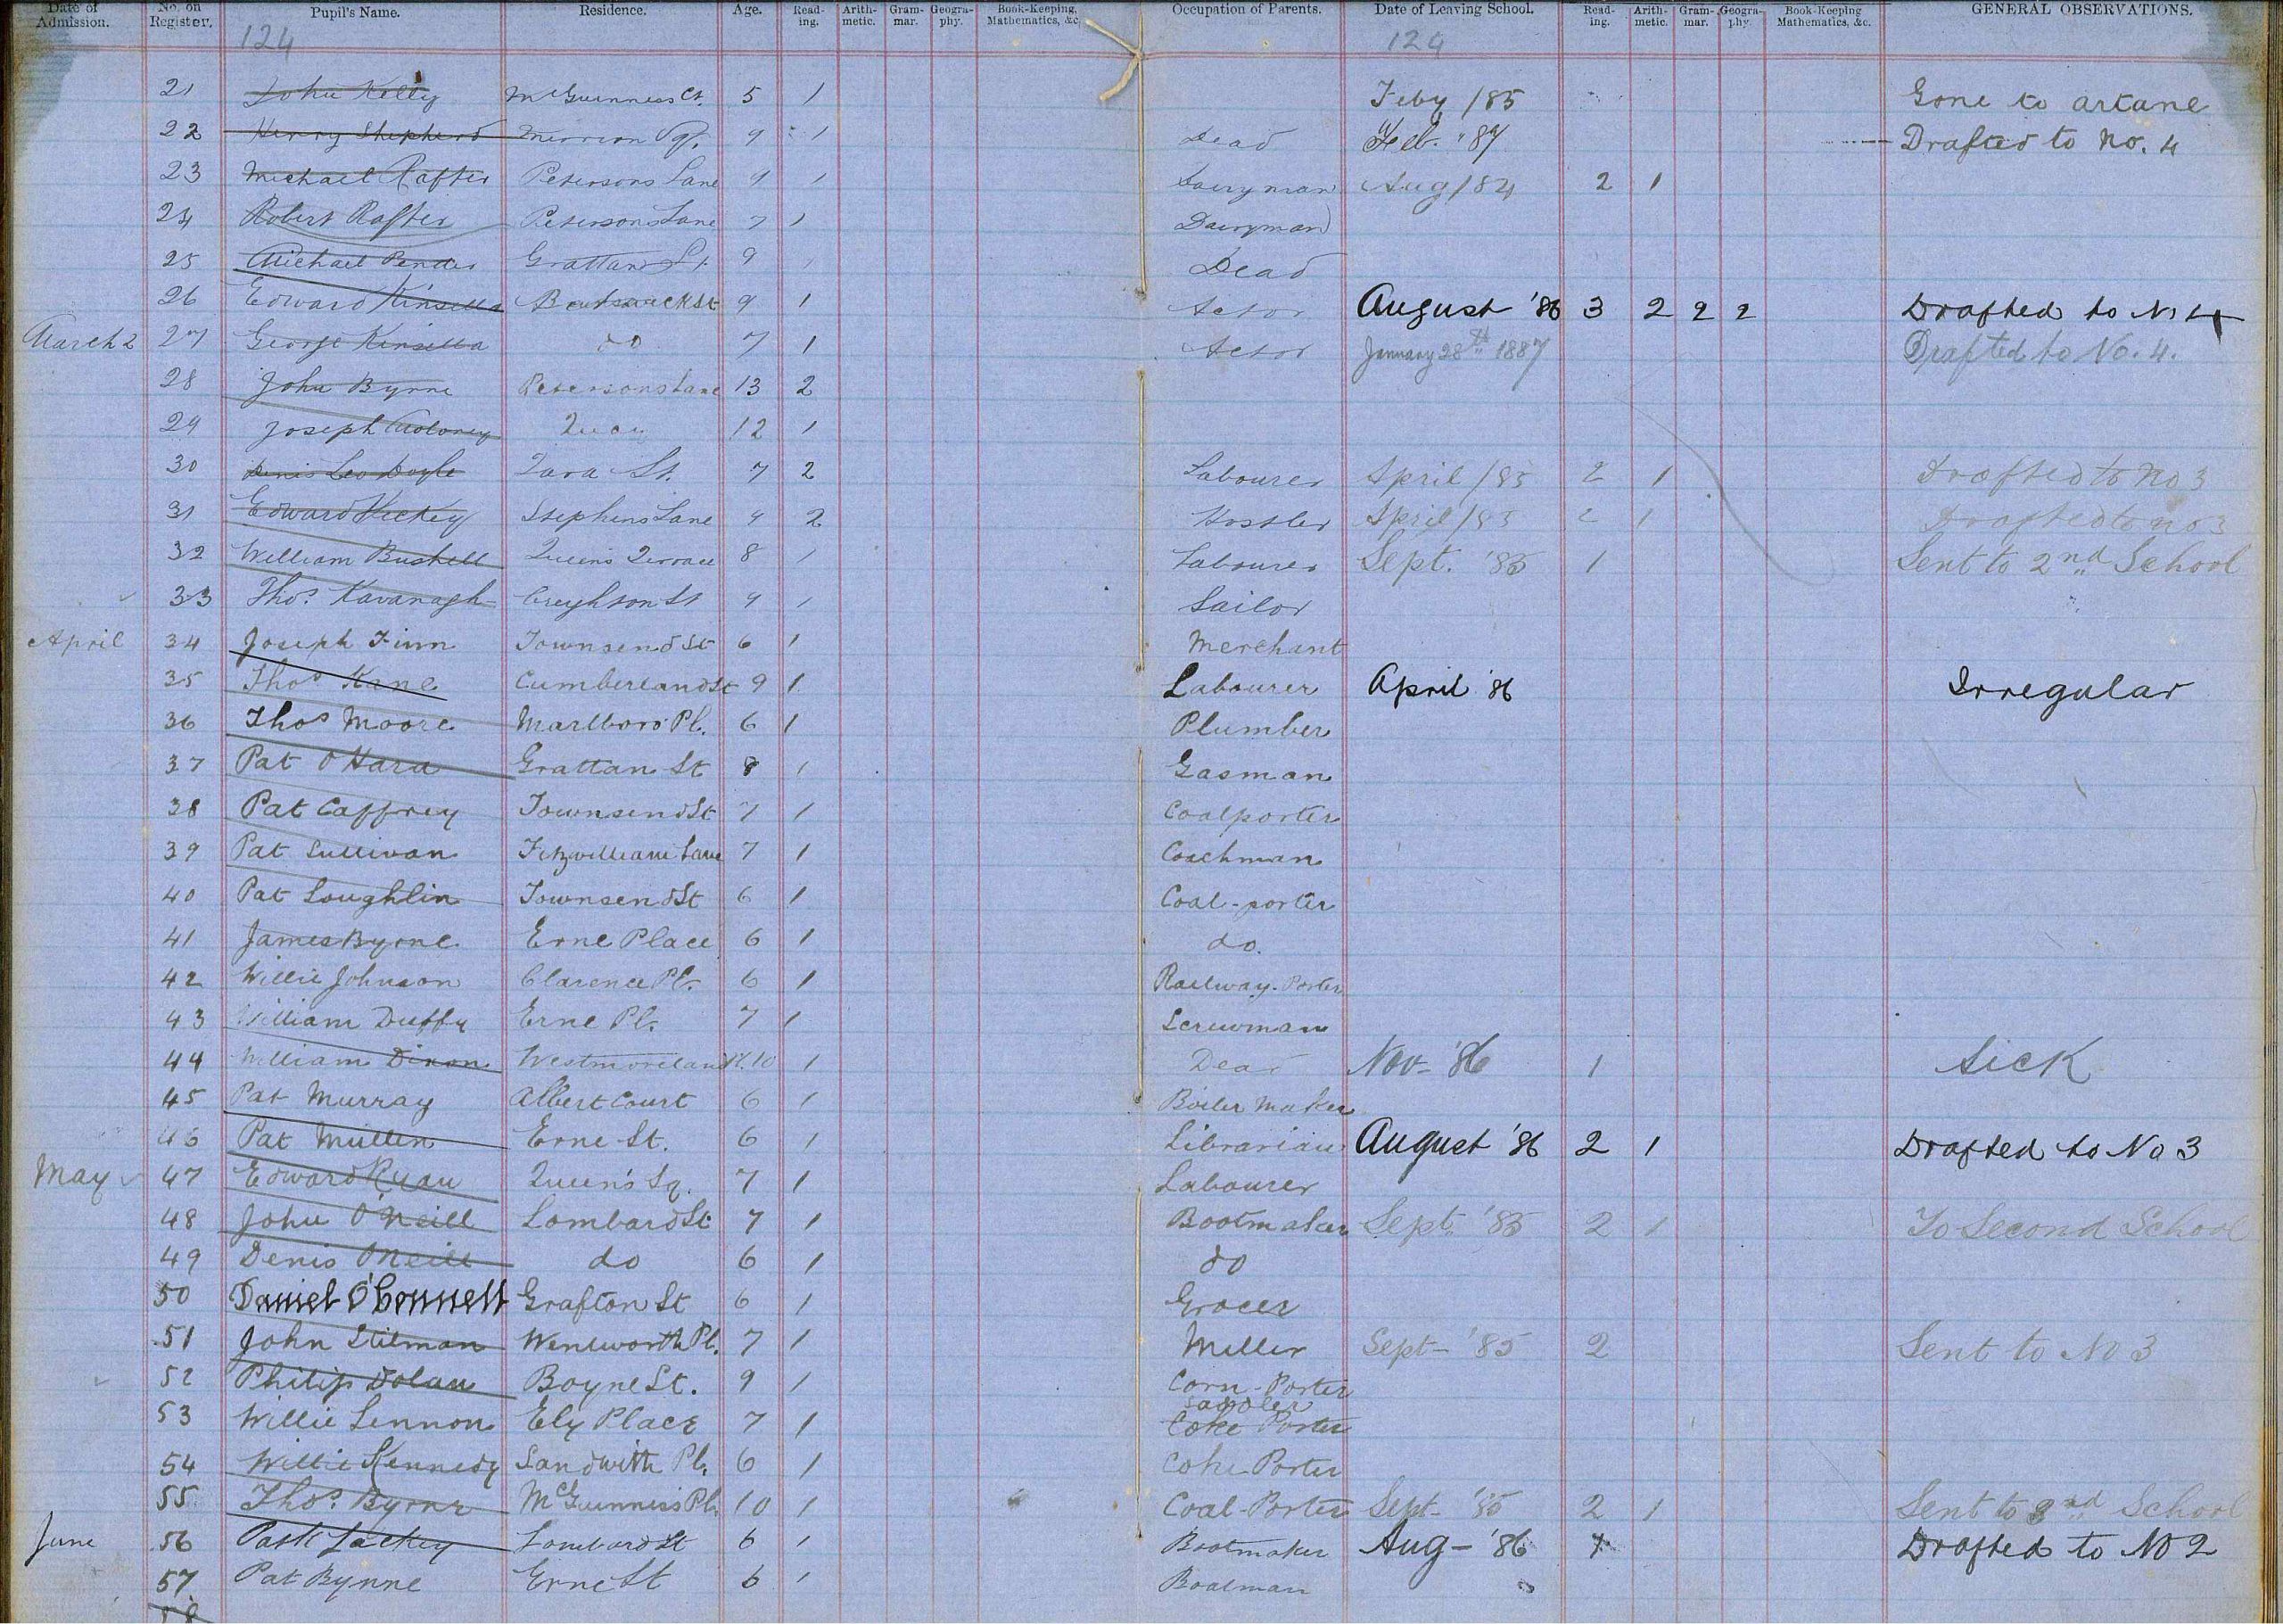 Date of Admission. No. on Register. Pupil's Name. Residence. Age. Read-ing. Arith-metic. Gram-mar. Geogra-phy. Book-Keeping, Mathematics, &c. Occupation of Parents. Date of Leaving School. Read-ing. Arith-metic. Gram-mar. Geogra-phy. Book-Keeping Mathematics, &c. GENERAL OBSERVATIONS.
124 124
21 John Kelly McGuinness Ct. 5 1 Feby /85 Gone to artane
22 Henry Shepherd Merrion Sq. 9 1 Dead Feb. '87 Drafted to No. 4
23 Michael Rafter Petersons Lane 9 1 Dairyman Aug /84 2 1
24 Robert Rafter Petersons Lane 7 1 Dairyman
25 Michael Pender Grattan St. 9 1 Dead
26 Edward Kinsella St 9 1 Actor August '86 3 2 2 2 Drafted to N 4
March 2 27 George Kinsella do 7 1 Actor January 28th 1887 Drafted to No. 4.
28 John Byrne Petersons Lane 13 2
29 Joseph Moloney 12 1
30 Denis Leo Doyle Tara St. 7 2 Labourer April /85 2 1 Drafted to No 3
31 Edward Hickey Stephens Lane 9 2 Hostler April /85 2 1 Drafted to no 3
32 William Bushell Queen's Terrace 8 1 Labourer Sept. '85 1 Sent to 2nd School
33 Thos. Kavanagh Creighton St 9 1 Sailor
April 34 Joseph Finn Townsend St 6 1 Merchant
35 Thos Kane Cumberland St 9 1 Labourer April '86 Irregular
36 Thos Moore Marlboro' Pl. 6 1 Plumber
37 Pat O'Hara Grattan St 8 1 Gasman
38 Pat Caffrey Townsend St 7 1 Coalporter
39 Pat Sullivan Fitzwilliam Lane 7 1 Coachman
40 Pat Loughlin Townsend St 6 1 Coal-porter
41 James Byrne Erne Place 6 1 do.
42 Willie Johnson Clarence Pl. 6 1 Railway-Porter
43 William Duffy Erne Pl. 7 1 Screwman
44 William Dixon Westmoreland St. 10 1 Dead Nov- '86 1 Sick
45 Pat Murray Albert Court 6 1 Boiler Maker
46 Pat Mullen Erne St. 6 1 Librarian August '86 2 1 Drafted to No 3
May 47 Edward Ryan Queen's Sq. 7 1 Labourer
48 John O'Neill Lombard St. 7 1 Bootmaker Sept. '85 2 1 To Second School
49 Denis O'Neill do 6 1 do
50 Daniel O'Connell Grafton St 6 1 Grocer
51 John Stilman Wentworth Pl. 7 1 Miller Sept- '85 2 Sent to No 3
52 Philip Dolan Boyne St. 9 1 Corn-Porter
53 Willie Lennon Ely Place 7 1 Saddler Coke Porter
54 Willie Kennedy Sandwith Pl. 6 1 Coke Porter
55 Thos. Byrne McGuinness Pl. 10 1 Coal-Porter Sept- '85 2 1 Sent to School
June 56 Patk Lackey Lombard St 6 1 Bootmaker Aug- '86 1 Drafted to No 2
57 Pat Bynne Erne St 6 1 Boatman
58